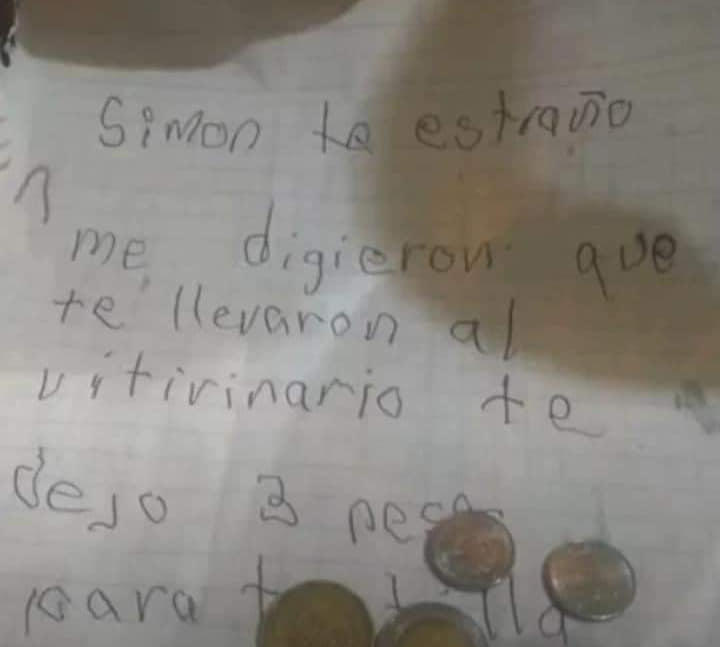 Simon te estraño
me digieron que
te llevaron al
vitirinario te
dejo 3
para